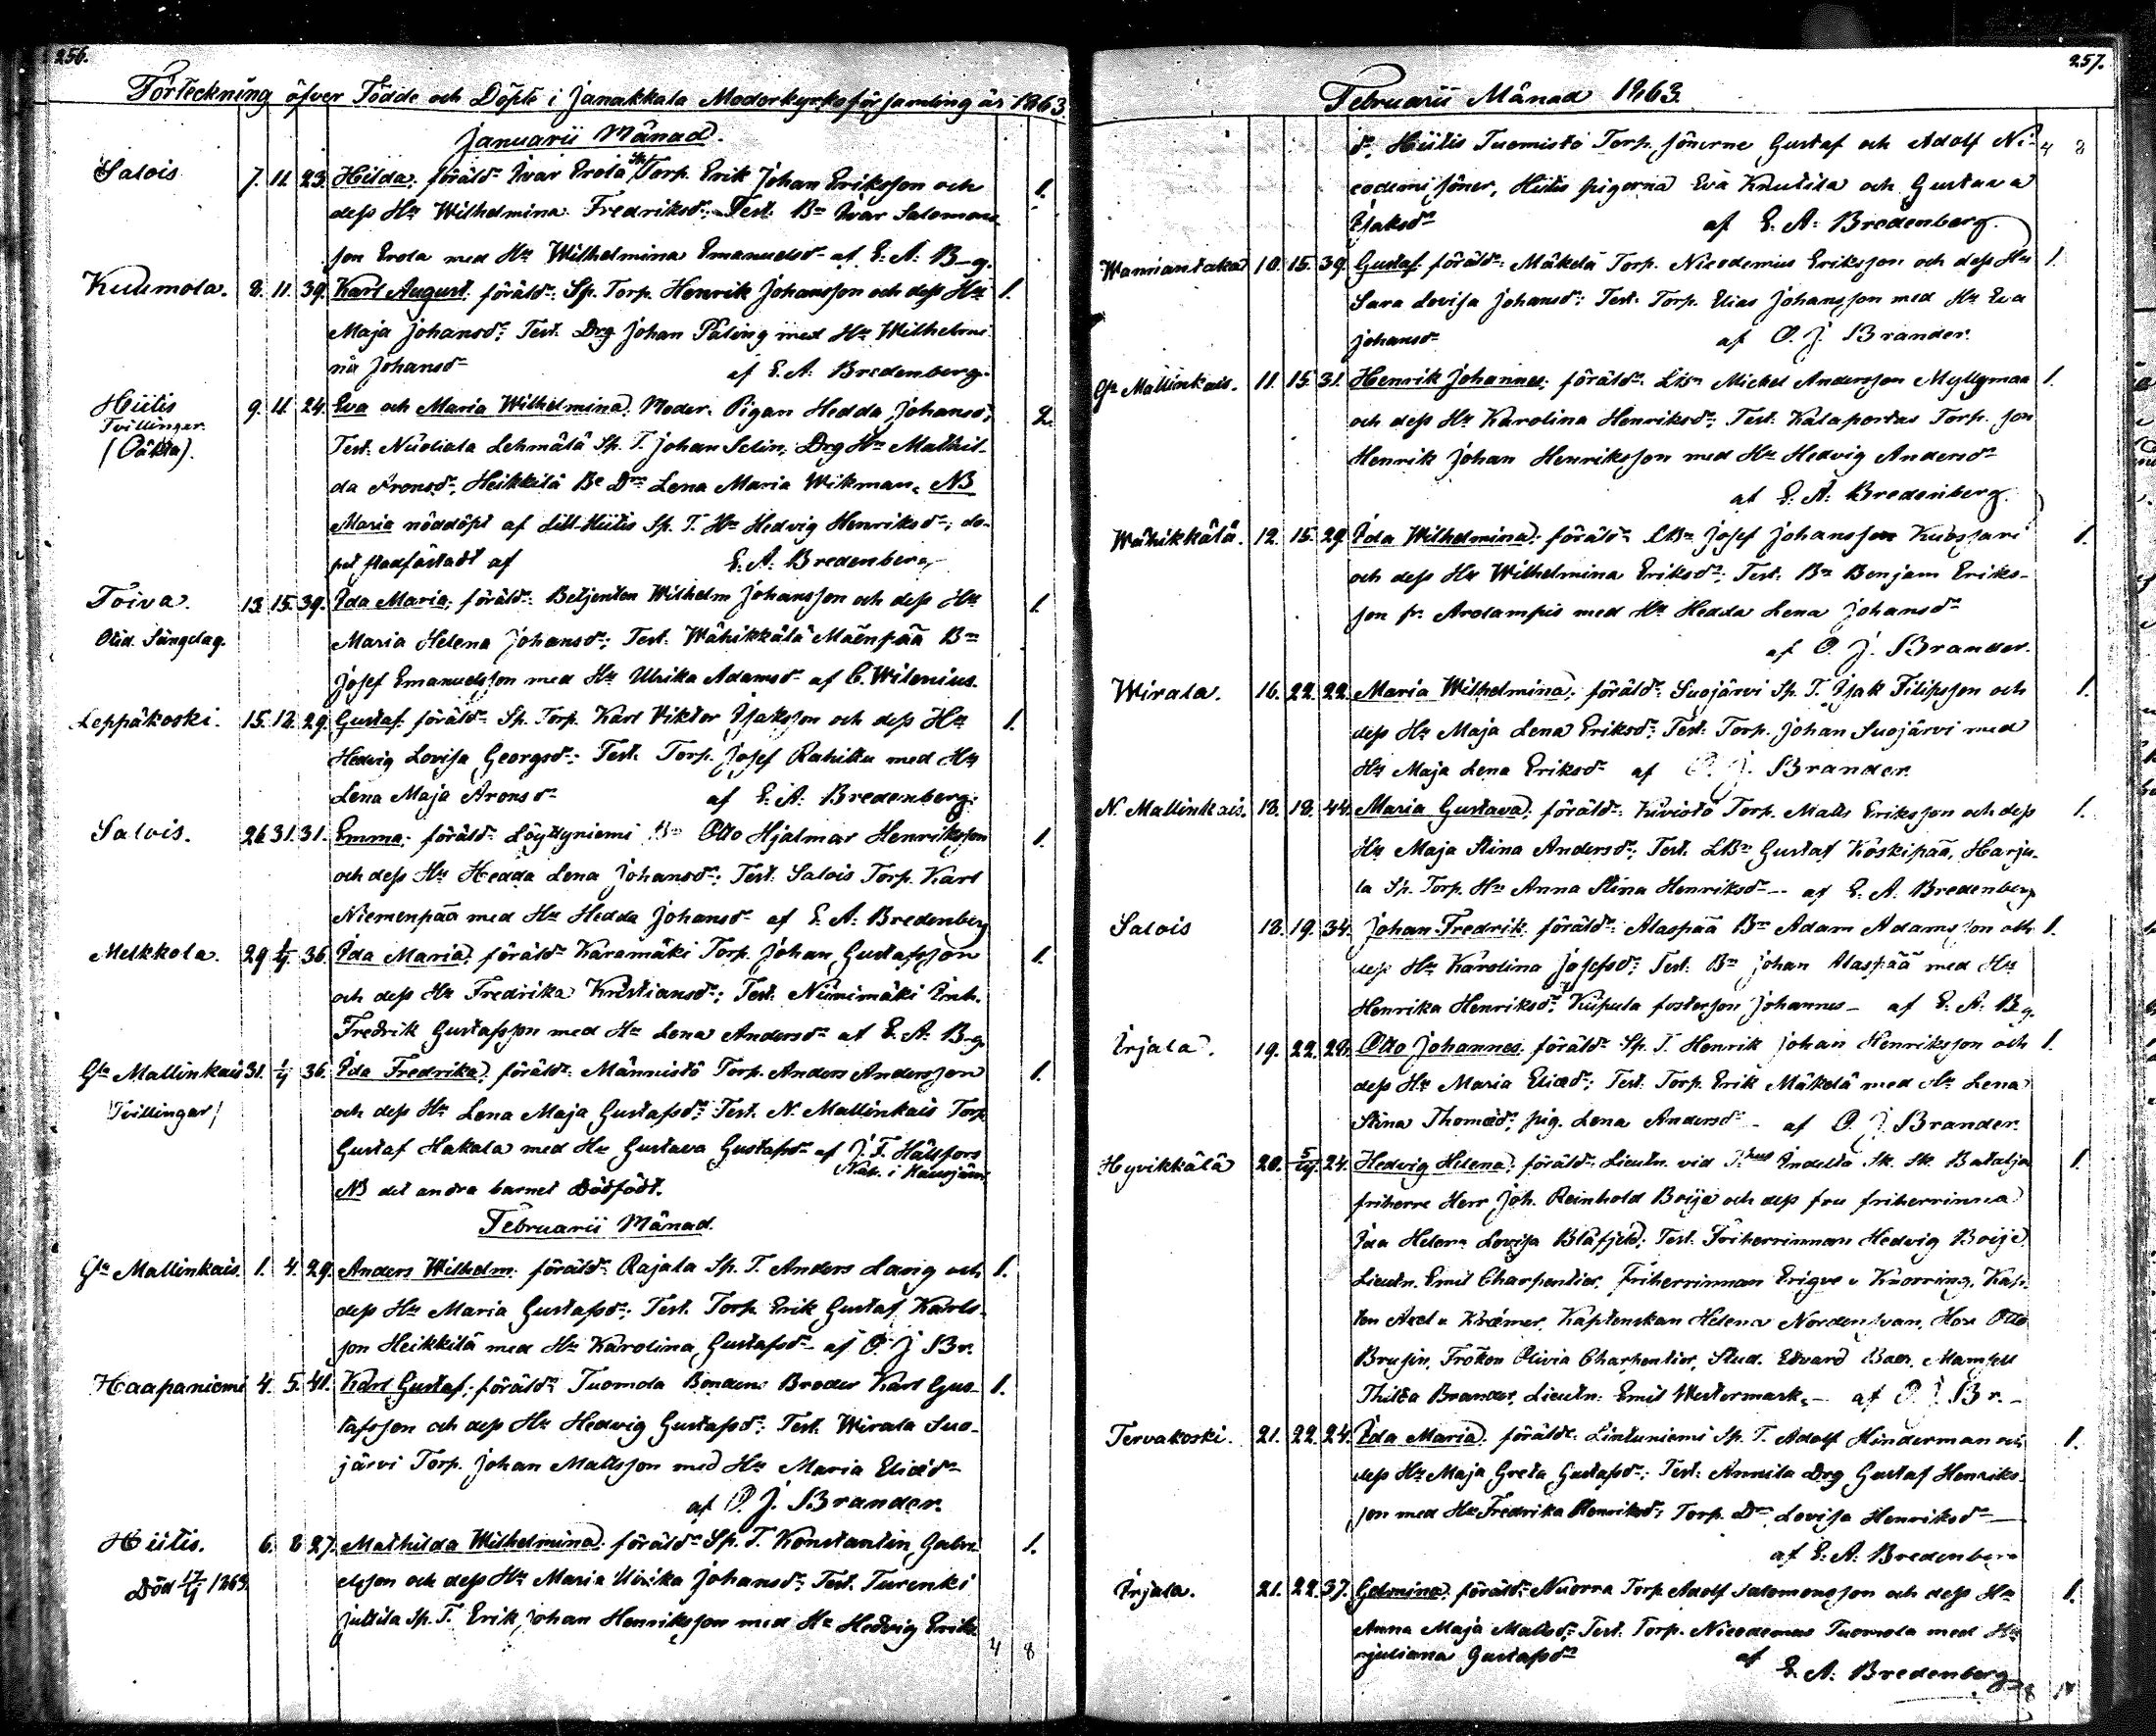 256.
Förteckning öfver Födde och Döpte i Janakkala Moderkyrkoförsamling år 1863.
Januarii Månad.
Salois 7. 11. 23. Hilda; föräldr Ivar Erola Torp. Erik Johan Eriksson och 1.
dess Hu Wilhelmina Fredriksdr; Test. Bn Ivar Salomons-
son Erola med Hu Wilhelmina Emanuelsdr af E. A. B-g.
Kuumola. 8. 11. 39. Karl August; föräldr: Sp. Torp. Henrik Johansson och dess Hu 1.
Maja Johansdr; Test. Drg Johan Påling med Hu Wilhelmi-
na Johansdr af E. A. Bredenberg.
Hiitis 9. 11. 24. Eva och Maria Wilhelmina; Moder. Pigan Hedda Johansdr; 2.
Tvillingar.
(Oäkta).
Test. Lehmälä Sp. T. Johan Selin, Drg Hu Mathil-
da Aronsdr, Heikkilä Be Dr Lena Maria Wikman. NB
Maria nöddöpt af Lill-Hiitis Sp. T. Hu Hedvig Henriksdr; do-
pet stadfästadt af E. A. Bredenberg
Toiva. 13. 15. 39. Ida Maria; föräldr: Betjenten Wilhelm Johansson och dess Hu 1.
Maria Helena Johansdr; Test. Wähikkälä Mäenpää Bn
Josef Emanuelsson med Hu Ulrika Adamsdr af C. Wilenius.
Leppäkoski. 15. 18. 29. Gustaf; föräldr Sp. Torp. Karl Viktor Isaksson och dess Hu 1.
Hedvig Lovisa Georgsdr: Test. Torp. Josef Rahiku med Hu
Lena Maja Aronsdr af E. A. Bredenberg.
Salois. 26 31. 31. Emma; föräldr Löyttyniemi Bn Otto Hjalmar Henriksson 1.
och dess Hu Hedda Lena Johansdr; Test. Salois Torp. Karl
Niemenpää med Hu Hedda Johansdr af E. A. Bredenberg
Melkkola. 29 1/ij. 36. Ida Maria; föräldr Karamäki Torp. Johan Gustafsson 1.
och dess Hu Fredrika Kristiansdr; Test. Niinimäki Inh.
Fredrik Gustafsson med Hu Lena Andersdr af E. A. B-g.
Gla Mallinkais 31. 1/ij 36. Ida Fredrika; föräldr: Männistö Torp. Anders Andersson 1.
(Tvillingar)
och dess Hu Lena Maja Gustafsdr; Test. N. Mallinkais Torp
Gustaf Hakala med Hu Gustava Gustafsdr af J. F. Hällfors
Kap. i Hausjärvi
NB det andra barnet Dödfödt.
Februarii Månad.
Gla Mallinkais. 1. 4. 29. Anders Wilhelm; föräldr Rajala Sp. T. Anders Lavig och 1.
dess Hu Maria Gustafsdr; Test. Torp. Erik Gustaf Karls-
son Heikkilä med Hu Karolina Gustafsdr af O. J. Br.
Haapaniemi 4. 5. 41. Karl Gustaf; föräldr: Tuomola Bondens Broder Karl Gus- 1.
tafsson och dess Hu Hedwig Gustafsdr; Test. Wirala Suo-
järvi Torp. Johan Mattsson med Hu Maria Eliædr
af O. J. Brander.
Hiitis. 6. 8 27. Mathilda Wilhelmina; föräldr Sp. T. Konstantin Gabri- 1.
Död 17/ij 1863.
elsson och dess Hu Maria Ulrika Johansdr; Test. Turenki
Juttila Sp. T. Erik Johan Henriksson med Hu Hedvig Eriks
4 8
257.
Februarii Månad 1863.
dr. Hiitis Tuomisto Torp. sönerne Gustaf och Adolf Ni- 4 8
codemi söner, Hiitis pigorna Eva Knutila och Gustava
Isaksdr af E. A. Bredenberg.
Wanantaka 10. 15. 39. Gustaf; föräldr: Mäkelä Torp. Nicodemus Eriksson och dess Hu 1.
Sara Lovisa Johansdr; Test. Torp. Elias Johansson med Hu Eva
Johansdr af O. J. Brander.
Gla Mallinkais. 11. 15. 31. Henrik Johannes; föräldr. LBn Michel Andersson Myllymaa 1.
och dess Hu Karolina Henriksdr; Test. Kalaportas Torp. son
Henrik Johan Henriksson med Hu Hedvig Andersdr
af E. A. Bredenberg.
Wähikkälä. 12. 15. 29 Ida Wilhelmina; föräldr LBn Josef Johansson 1.
och dess Hu Wilhelmina Eriksdr; Test. Bn Benjam Eriks-
son fr. Arolampis med Hu Hedda Lena Johansdr
af O. J. Brander.
Wirala. 16. 22. 22. Maria Wilhelmina; föräldr. Suojärvi Sp. T. Isak Filipsson och 1.
dess Hu Maja Lena Eriksdr; Test. Torp. Johan Suojärvi med
Hu Maja Lena Eriksdr af O. J. Brander.
N. Mallinkais. 18. 18. 44. Maria Gustava; föräldr: Kivistö Torp. Matts Eriksson och dess 1.
Hu Maja Stina Andersdr; Test. LBn Gustaf Koskipää, Harju-
la Sp. Torp. Hu Anna Stina Henriksdr - af E. A. Bredenberg
Salois 18. 19. 34. Johan Fredrik; föräldr: Alaspää Bn Adam Adamsson och 1.
dess Hu Karolina Josefsdr; Test. Bn Johan Alaspää med Hu
Henrika Henriksdr, Kiipula fosterson Johannes - af E. A. B-g.
Irjala. 19. 22. 29. Otto Johannes; föräldr Sp. T. Henrik Johan Henriksson och 1.
dess Hu Maria Eliædr; Test. Torp. Erik Mäkelä med Hu Lena
Stina Thomædr; pig. Lena Andersdr - af O. J. Brander.
Hyvikkälä 20. 5/iij. 24. Hedvig Helena; föräldr: Lieutn. vid Indelta Sk. Batalj. 1.
friherre Herr Joh. Reinhold Boije och dess fru friherrinna
Ida Helena Lovisa Blåfjeld; Test. Friherrinnan Hedvig Boije,
Lieutn. Emil Charpentier, Friherrinnan v Knorring, Kap-
ten Axel v Kræmer, Kaptenskan Helena Nordensvan, Herr Otto
Brusin, Fröken Olivia Charpentier, Stud. Edvard Bach, Mamsell
Thilda Brander, Lieutn. Emil Westermark. - af O. J. Br. -
Tervakoski. 21. 22. 24. Ida Maria; föräldr. Lintuniemi Sp. T. Adolf Hinderman och 1.
dess Hu Maja Greta Gustafsdr; Test. Annila Drg Gustaf Henriks-
son med Hu Fredrika Henriksdr; Torp. Dr Lovisa Henriksdr
af E. A. Bredenberg
Irjala. 21. 22. 37. Edmina; föräldr: Nuorra Torp. Adolf Salomonsson och dess Hu 1.
Anna Maja Mattsdr; Test. Torp. Nicodemus Tuomola med Hu
Juliana Gustafsdr af
E. A. Bredenberg